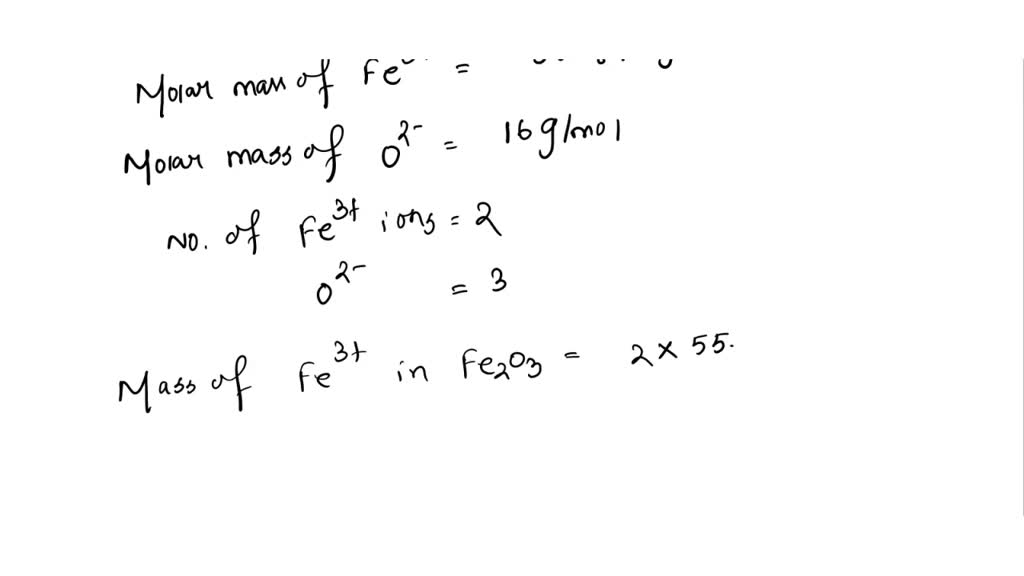 Molar mass of Fe =
Molar mass of O²⁻ = 16 g/mol
No. of Fe³⁺ ions = 2
O²⁻ = 3
Mass of Fe³⁺ in Fe₂O₃ = 2 × 55.